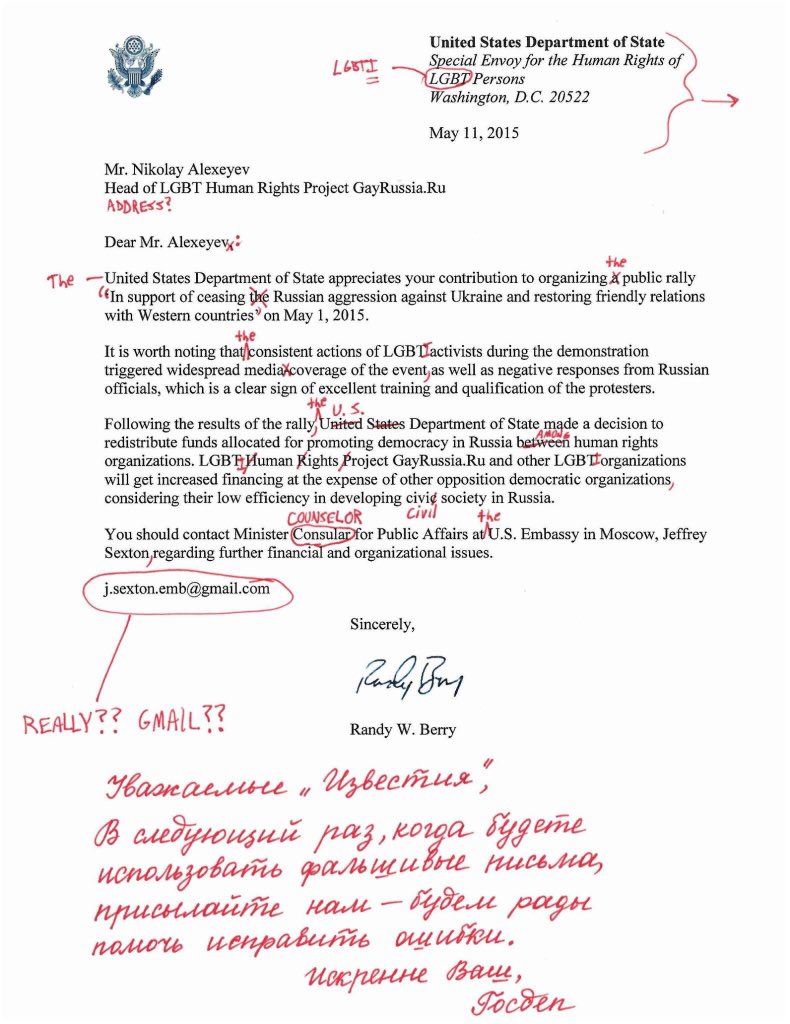 United States Department of State
LGBTI
Special Envoy for the Human Rights of
LGBT Persons
Washington, D.C. 20522
May 11, 2015
Mr. Nikolay Alexeyev
Head of LGBT Human Rights Project GayRussia.Ru
ADDRESS?
Dear Mr. Alexeyev, :
the
The United States Department of State appreciates your contribution to organizing a public rally
"In support of ceasing the Russian aggression against Ukraine and restoring friendly relations
with Western countries" on May 1, 2015.
the
It is worth noting that consistent actions of LGBTI activists during the demonstration
triggered widespread media coverage of the event, as well as negative responses from Russian
officials, which is a clear sign of excellent training and qualification of the protesters.
the U.S.
Following the results of the rally, United States Department of State made a decision to
AMONG
redistribute funds allocated for promoting democracy in Russia between human rights
organizations. LGBTI Human Rights Project GayRussia.Ru and other LGBTI organizations
will get increased financing at the expense of other opposition democratic organizations,
considering their low efficiency in developing civic society in Russia.
COUNSELOR civil the
You should contact Minister Consular for Public Affairs at U.S. Embassy in Moscow, Jeffrey
Sexton, regarding further financial and organizational issues.
j.sexton.emb@gmail.com
Sincerely,
Randy Berry
REALLY?? GMAIL??
Randy W. Berry
Уважаемые „Известия",
В следующий раз, когда будете
использовать фальшивые письма,
присылайте нам – будем рады
помочь исправить ошибки.
Искренне Ваш,
Госдеп